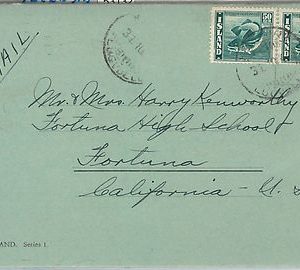 MAIL
50
ISLAND
Mr & Mrs Harry Kenworthy
Fortuna High School
Fortuna
California - U. S
AND. Series 1.